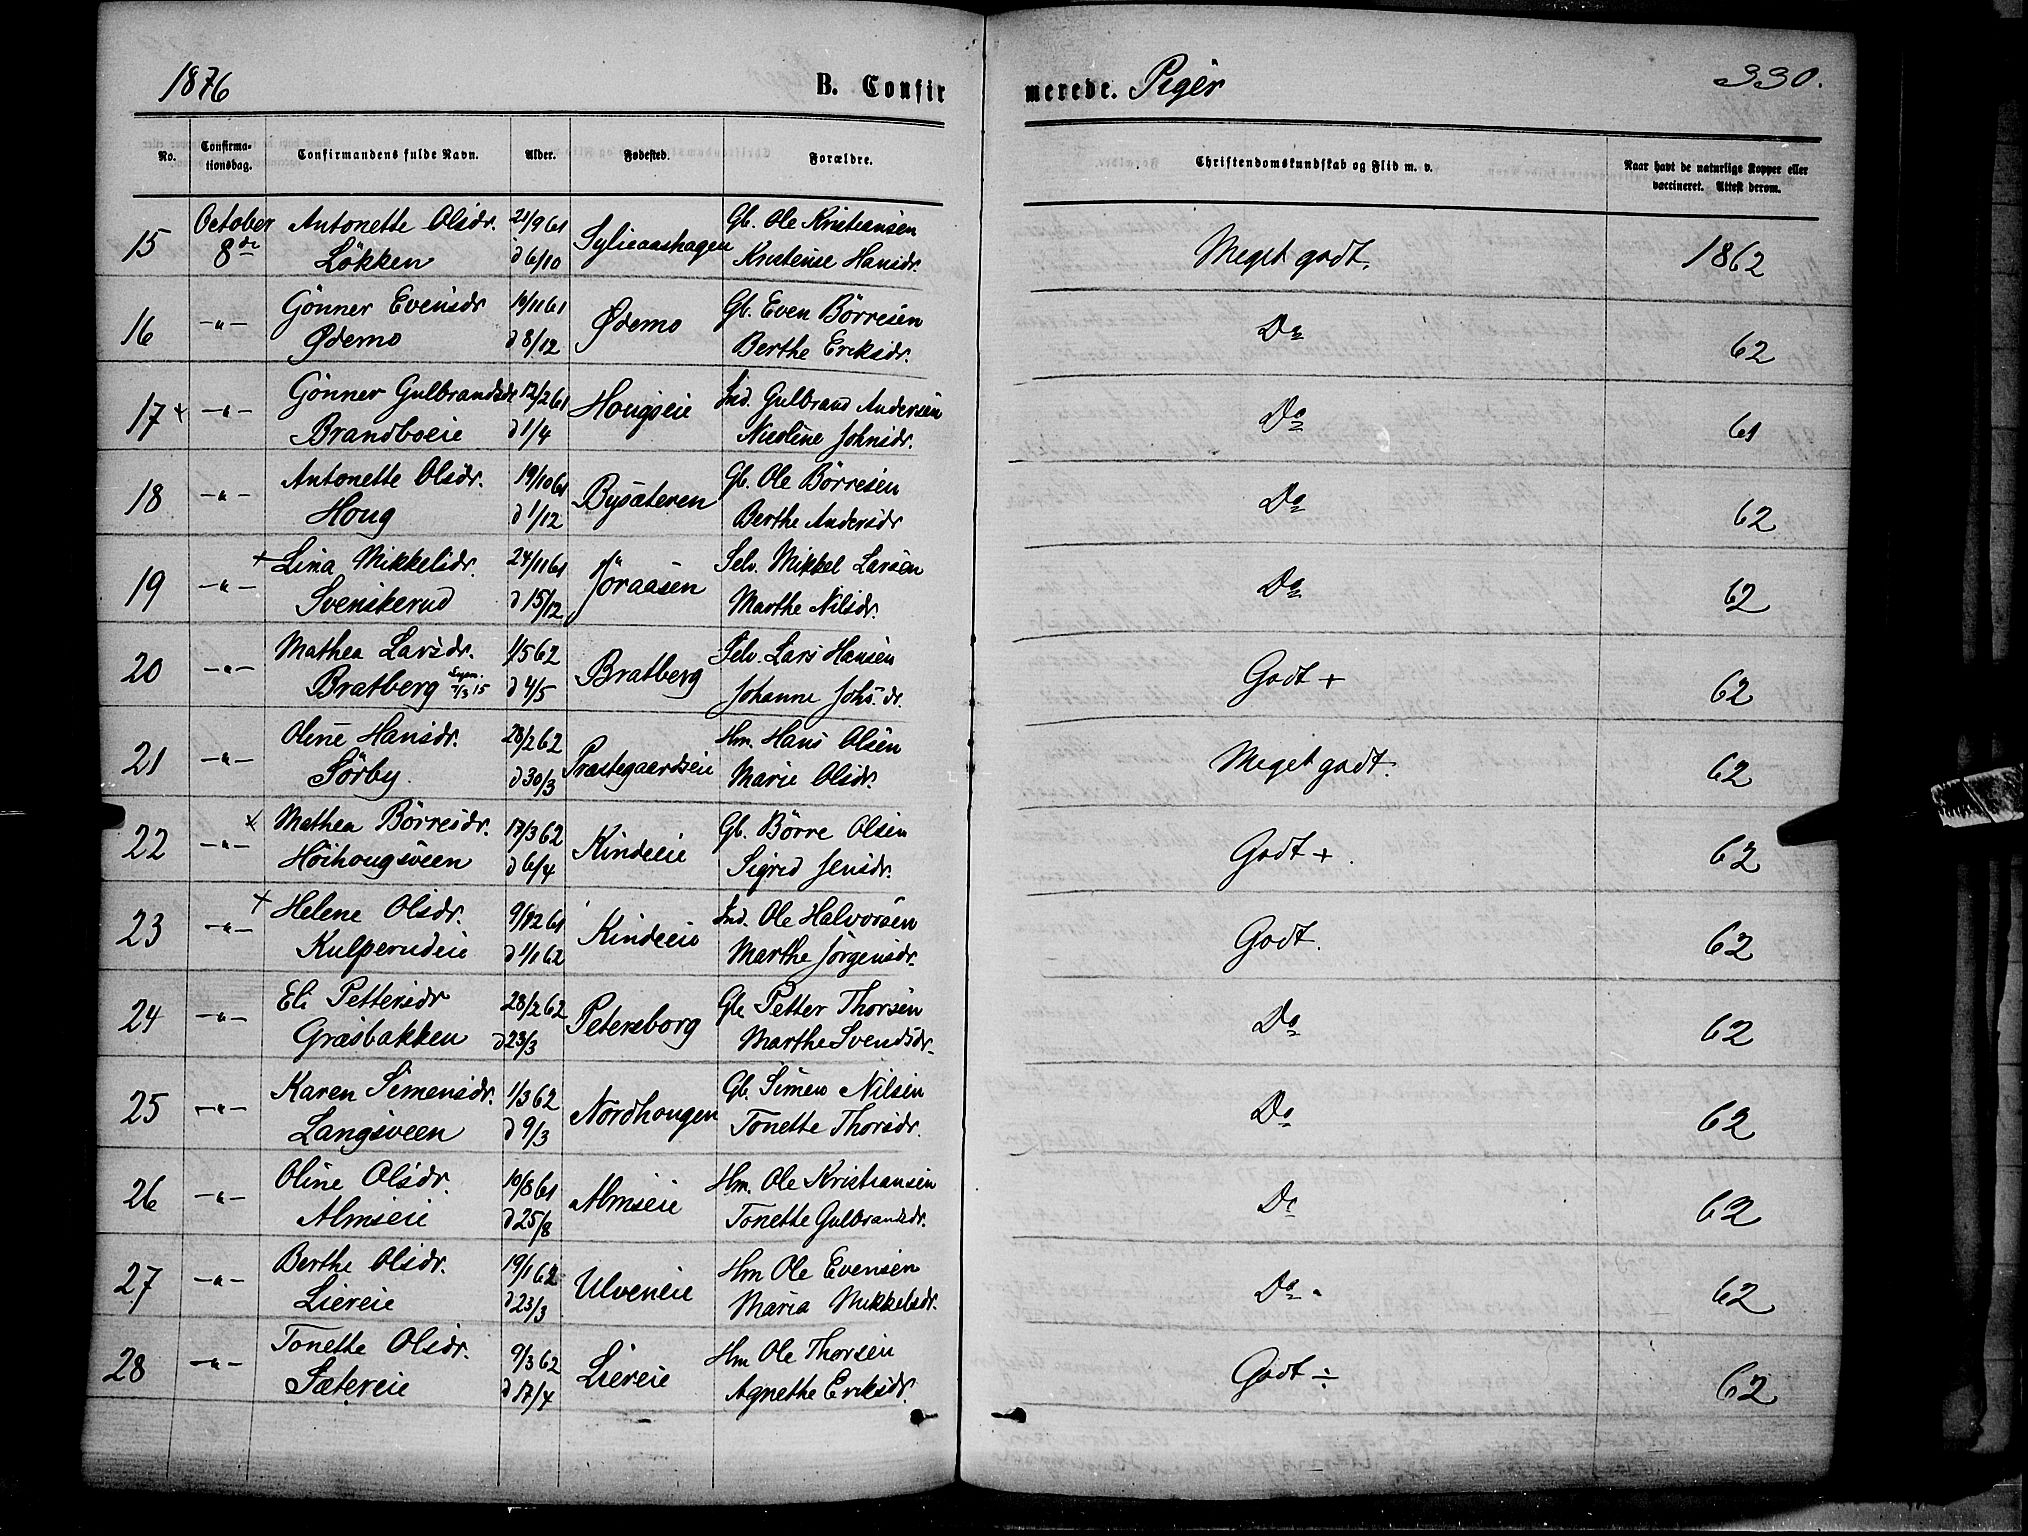 1876 B. Confirmerede. Piger 330.
No. Confirmationsdag. Confirmandens fulde Navn. Alder. Fødested. Forældre. Christendomskundskab og Flid m. v. Naar havt de naturlige Kopper eller vaccineret. Attest derom.
15 October 8de Antonette Olsdr. 21/9 61 Gb. Ole Kristiansen Meget godt. 1862
Løkken d 6/10 Kristense Hansdr.
16 -"- Gönner Evensdr 10/11 61 Ødemo Gb. Even Börresen Do 62
Ødemo d 8/12 Berthe Eriksdr.
17 x -"- Gönner Gulbrandsdr 12/2 61 Hougseie Ind. Gulbrand Andersen Do 61
Brandboeie d 1/4 Nicoline Johnsdr.
18 -"- Antonette Olsdr. 19/10 61 Bysæteren Gb. Ole Börresen Do 62
Houg d 1/12 Berthe Andersdr
19 -"- + Lina Mikkelsdr. 24/11 61 Jöraasen Selv. Mikkel Larsen Do 62
Svenskerud d 15/12 Marthe Nilsdr.
20 -"- Mathea Larsdr. 1/5 62 Bratberg Selv. Lars Hansen Godt + 62
Bratberg 7/3 15 d 4/5 Johanne Johs.dr.
21 -"- Oline Hansdr. 28/2 62 Præstegaardseie Hm. Hans Olsen Meget godt. 62
Sörby. d 30/3 Marie Olsdr.
22 -"- x Mathea Börresdr. 17/3 62 Kindeeie Gb. Börre Olsen Godt + . 62
Höihougsveen d 6/4 Sigrid Jensdr.
23 -"- + Helene Olsdr. 9/12 61 Kindeeie Ind. Ole Halvorsen Godt. 62
Kulperudeie d 1/1 62 Marthe Jörgensdr.
24 -"- Eli Pettersdr 28/2 62 Petersborg Gb. Petter Thorsen Do 62
Græsbakken d 23/3 Marthe Svendsdr.
25 -"- Karen Simensdr. 1/3 62 Nordhougen Gb. Simen Nilsen Do 62
Langsveen d 9/3 Tonette Thorsdr.
26 -"- Oline Olsdr. 10/8 61 Almseie Hm. Ole Kristiansen Do 62
Almseie d 25/8 Tonette Gulbrandsdr.
27 -"- Berthe Olsdr. 19/1 62 Ulveneie Hm Ole Evensen Do . 62
Liereie d 23/3 Maria Mikkelsdr.
28 -"- Tonette Olsdr. 9/3 62 Liereie Hm Ole Thorsen Godt ÷ 62
Sætereie d 17/4 Agnethe Eriksdr.